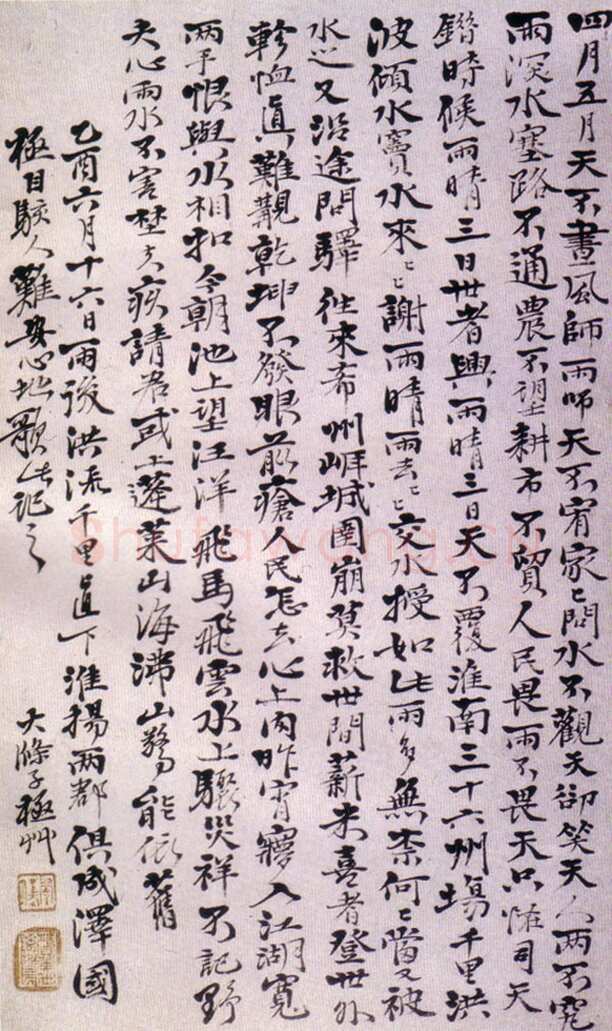 四月五月天不晝風師雨師天不宥家〻問水不觀天卻笑天人兩不究
雨深水塞路不通農不望耕市不貿人民畏雨不畏天只怪司天
錯時候雨晴三日世者興雨晴三日天不覆淮南三十六州場千里洪
波傾水竇水來〻謝雨晴雨去〻交水授如此雨多無柰何〻當又被
水又沿途問驛往來希州崕城圍崩莫救世間薪米喜者登世外
軫恤真難覯乾坤不發眼前瘡人民怎去心上肉昨宵夢入江湖寬
两手恨與水相扣今朝池上望汪洋飛馬飛雲水上驟災祥不記野
夫心雨水不害埜夫疾請君或上蓬萊山海沸山驚能依舊
乙酉六月十六日雨後洪流千里直下淮揚兩郡俱成澤國
極目駭人難安心地歌此記之
大滌子極艸
Shufawang.cn